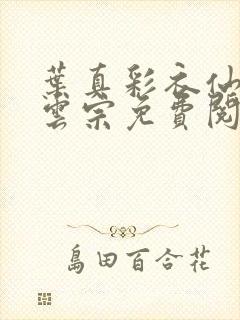 葉真彩衣仙
雲宗免費閱
島田百合花